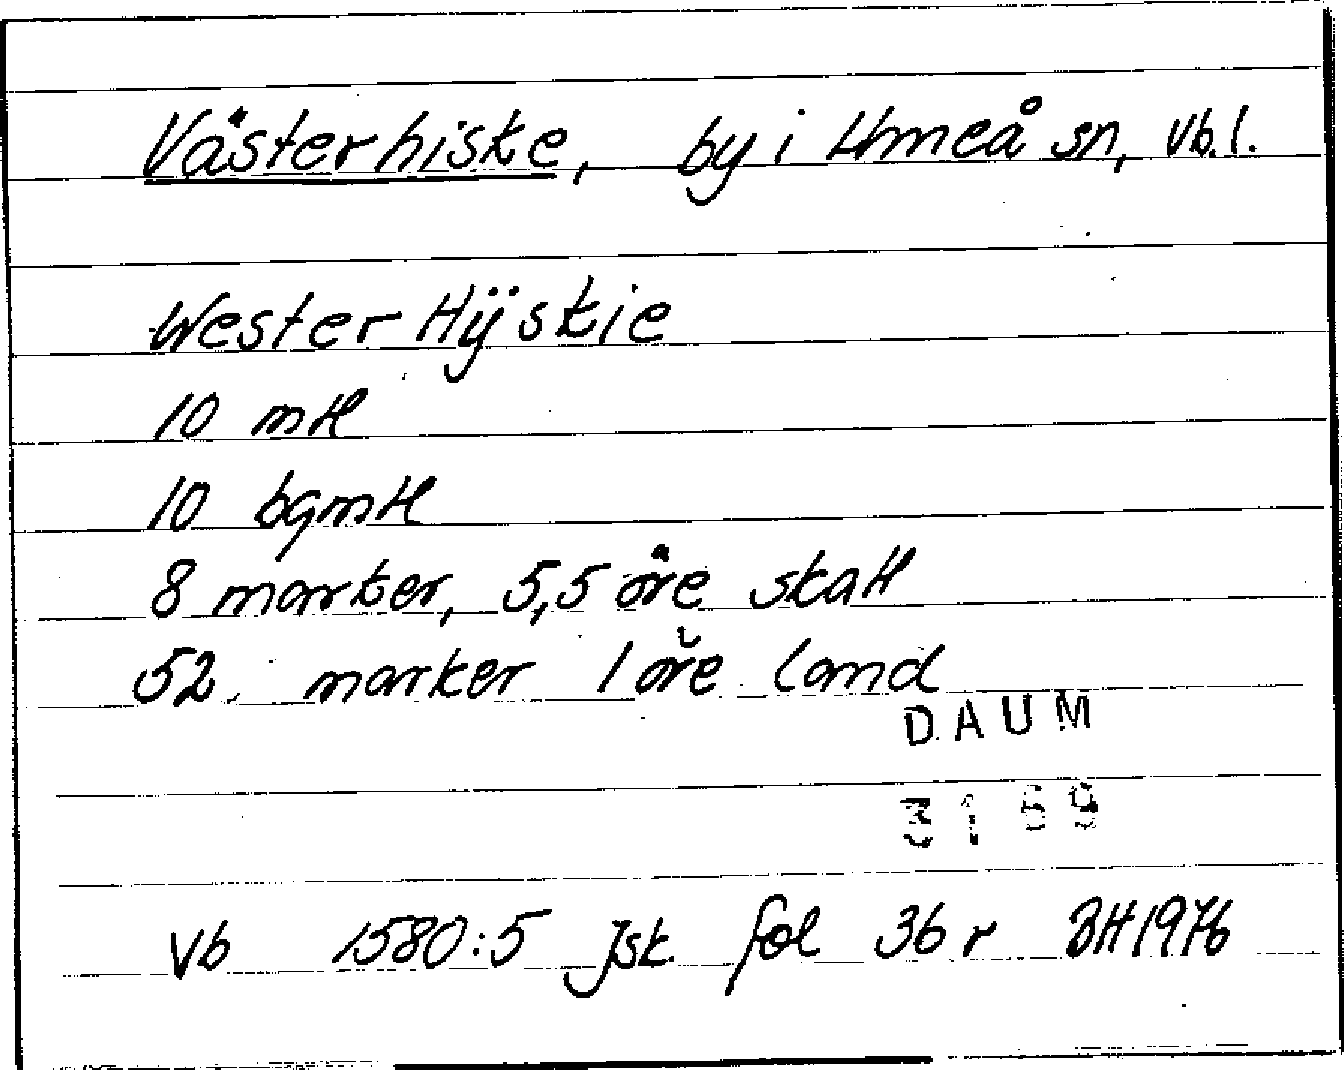 Västerhiske, by i Umeå sn, Vb.l.
Wester Hÿskie
10 mtl
10 bgmtl
8 marker, 5,5 öre skatt
52 marker 1 öre land
DAUM
3169
Vb 1580:5 Jsk fol 36 r BH 1976